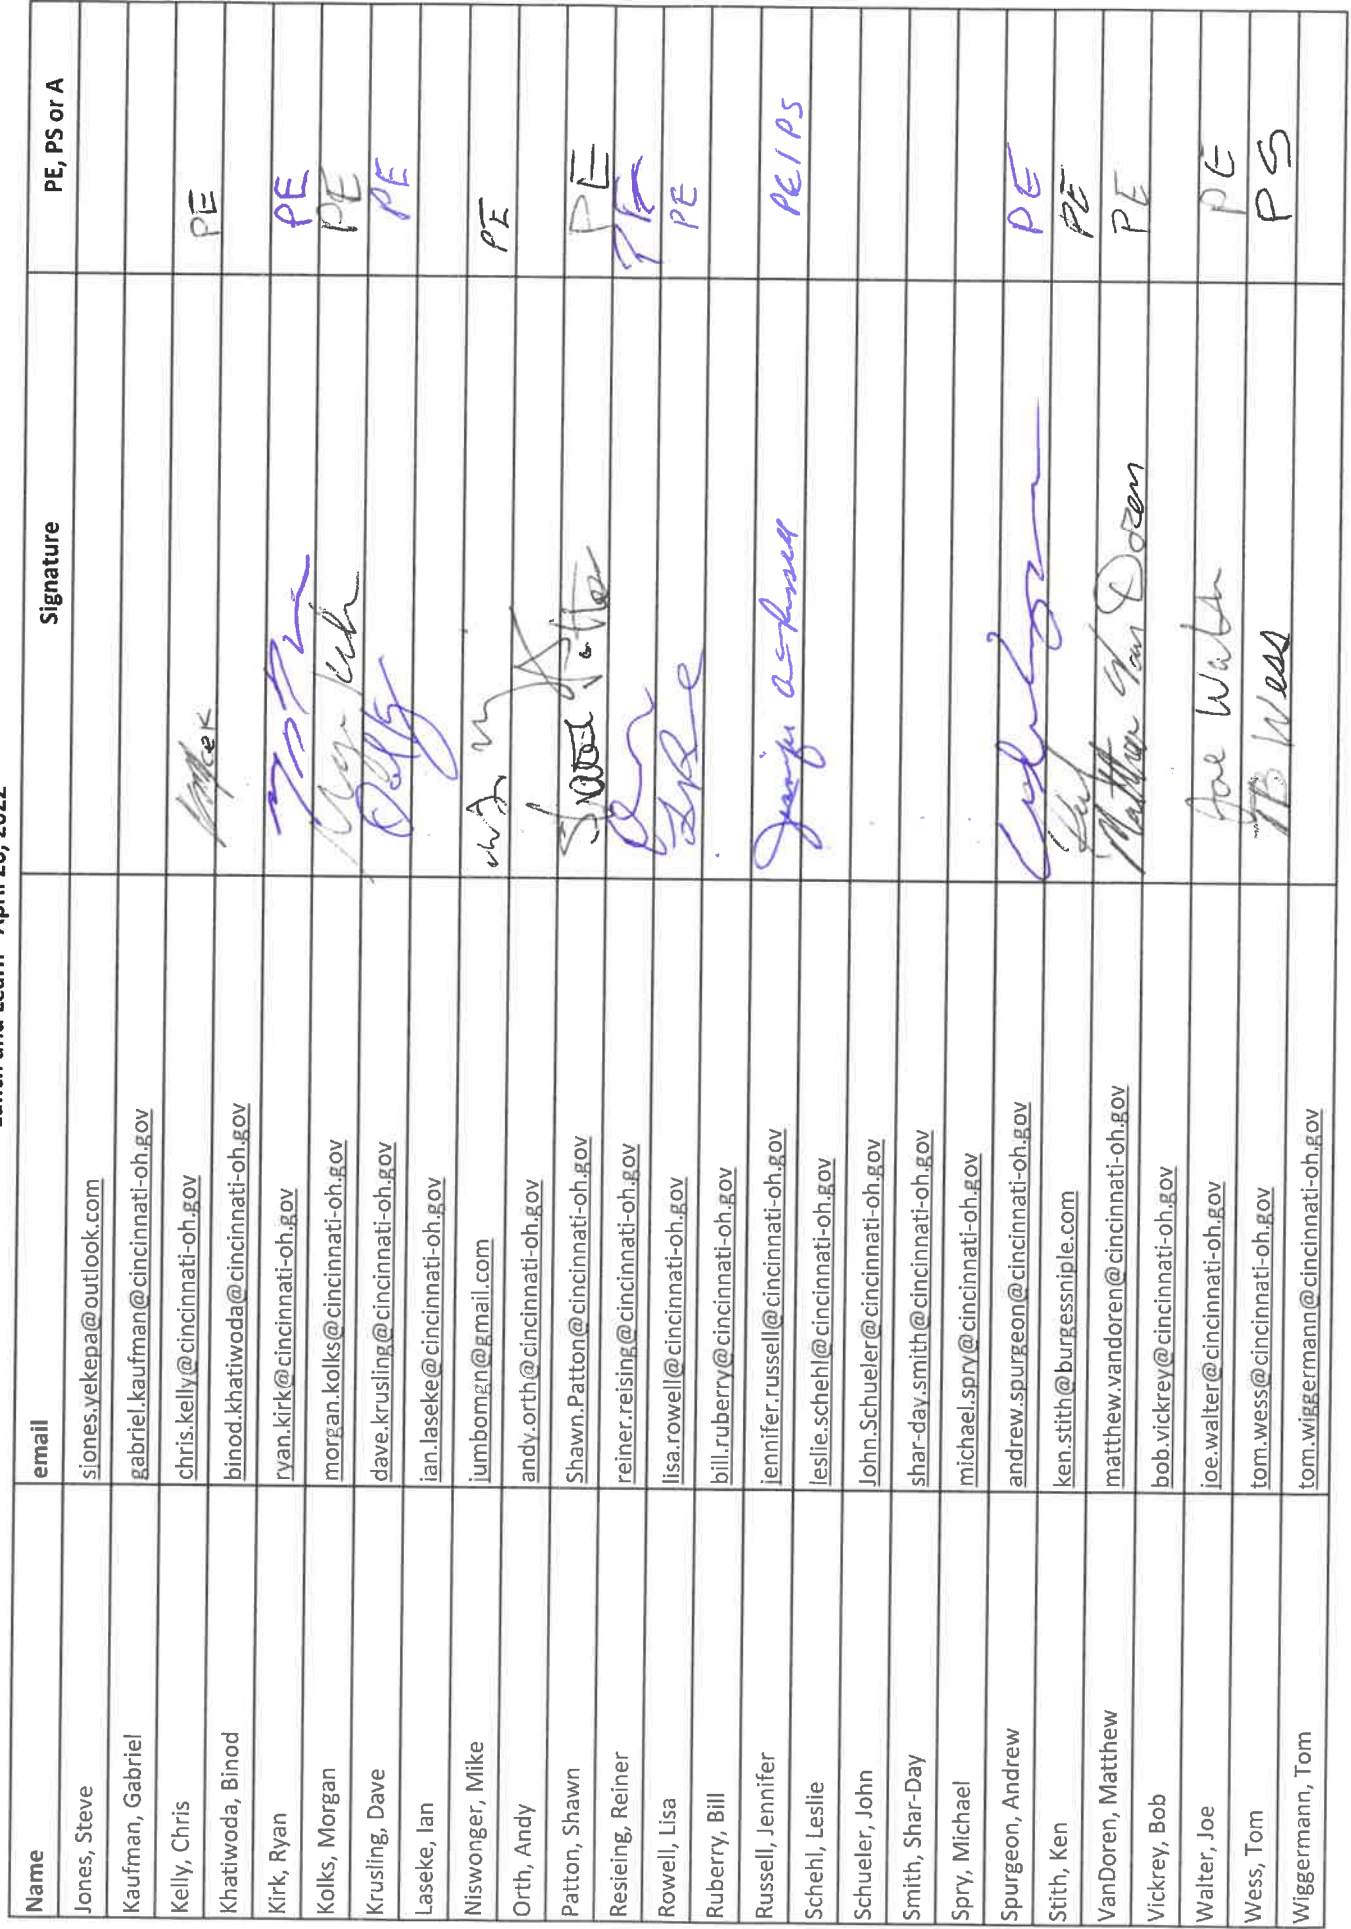 Lunch and Learn - April 20, 2022
Name email Signature PE, PS or A
Jones, Steve sjones.yekepa@outlook.com
Kaufman, Gabriel gabriel.kaufman@cincinnati-oh.gov
Kelly, Chris chris.kelly@cincinnati-oh.gov PE
Khatiwoda, Binod binod.khatiwoda@cincinnati-oh.gov
Kirk, Ryan ryan.kirk@cincinnati-oh.gov PE
Kolks, Morgan morgan.kolks@cincinnati-oh.gov PE
Krusling, Dave dave.krusling@cincinnati-oh.gov PE
Laseke, Ian ian.laseke@cincinnati-oh.gov
Niswonger, Mike jumbomgn@gmail.com PE
Orth, Andy andy.orth@cincinnati-oh.gov
Patton, Shawn Shawn.Patton@cincinnati-oh.gov Shawn Patton PE
Resieing, Reiner reiner.reising@cincinnati-oh.gov PE
Rowell, Lisa lisa.rowell@cincinnati-oh.gov PE
Ruberry, Bill bill.ruberry@cincinnati-oh.gov
Russell, Jennifer jennifer.russell@cincinnati-oh.gov Jennifer a Russell PE/PS
Schehl, Leslie leslie.schehl@cincinnati-oh.gov
Schueler, John John.Schueler@cincinnati-oh.gov
Smith, Shar-Day shar-day.smith@cincinnati-oh.gov
Spry, Michael michael.spry@cincinnati-oh.gov
Spurgeon, Andrew andrew.spurgeon@cincinnati-oh.gov PE
Stith, Ken ken.stith@burgessniple.com PE
VanDoren, Matthew matthew.vandoren@cincinnati-oh.gov Matthew Van Doren PE
Vickrey, Bob bob.vickrey@cincinnati-oh.gov
Walter, Joe joe.walter@cincinnati-oh.gov Joe Walter PE
Wess, Tom tom.wess@cincinnati-oh.gov TB Wess PS
Wiggermann, Tom tom.wiggermann@cincinnati-oh.gov